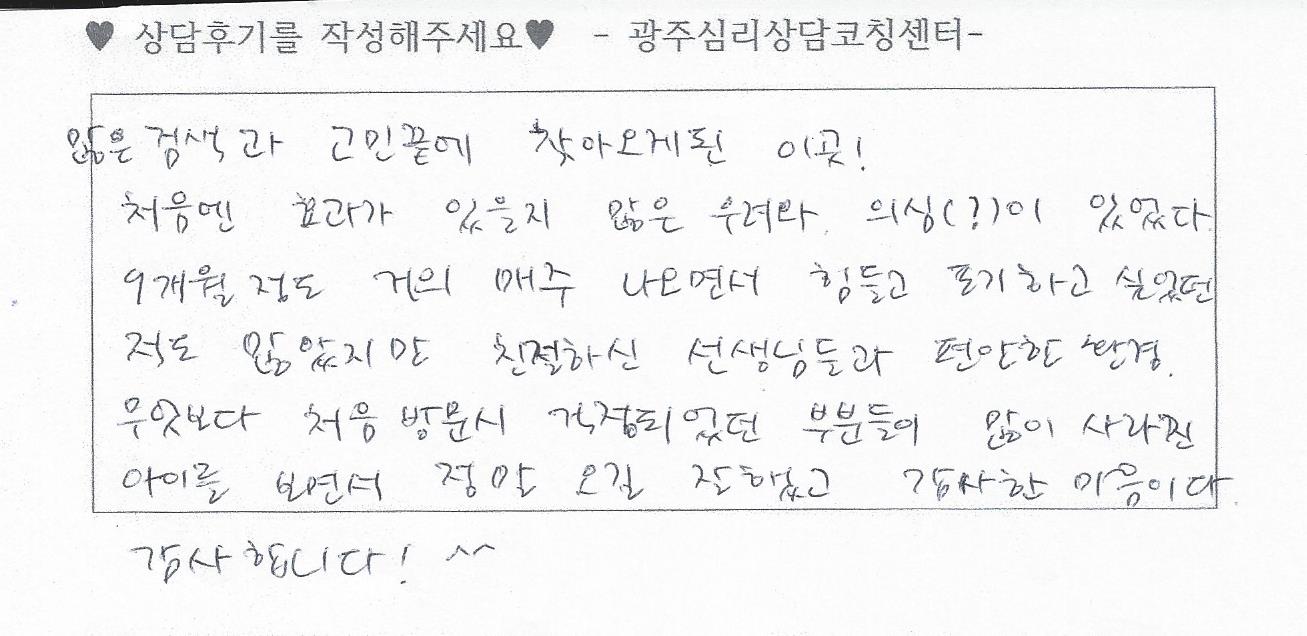 ♥ 상담후기를 작성해주세요♥ - 광주심리상담코칭센터-
많은 검색과 고민끝에 찾아오게된 이곳!
처음엔 효과가 있을지 많은 우려와 의심(?)이 있었다.
9개월 정도 거의 매주 나오면서 힘들고 포기하고 싶었던
적도 많았지만 친절하신 선생님들과 편안한 환경.
무엇보다 처음 방문시 걱정되었던 부분들이 많이 사라진
아이를 보면서 정말 오길 잘했고 감사한 마음이다.
감사합니다! ^^